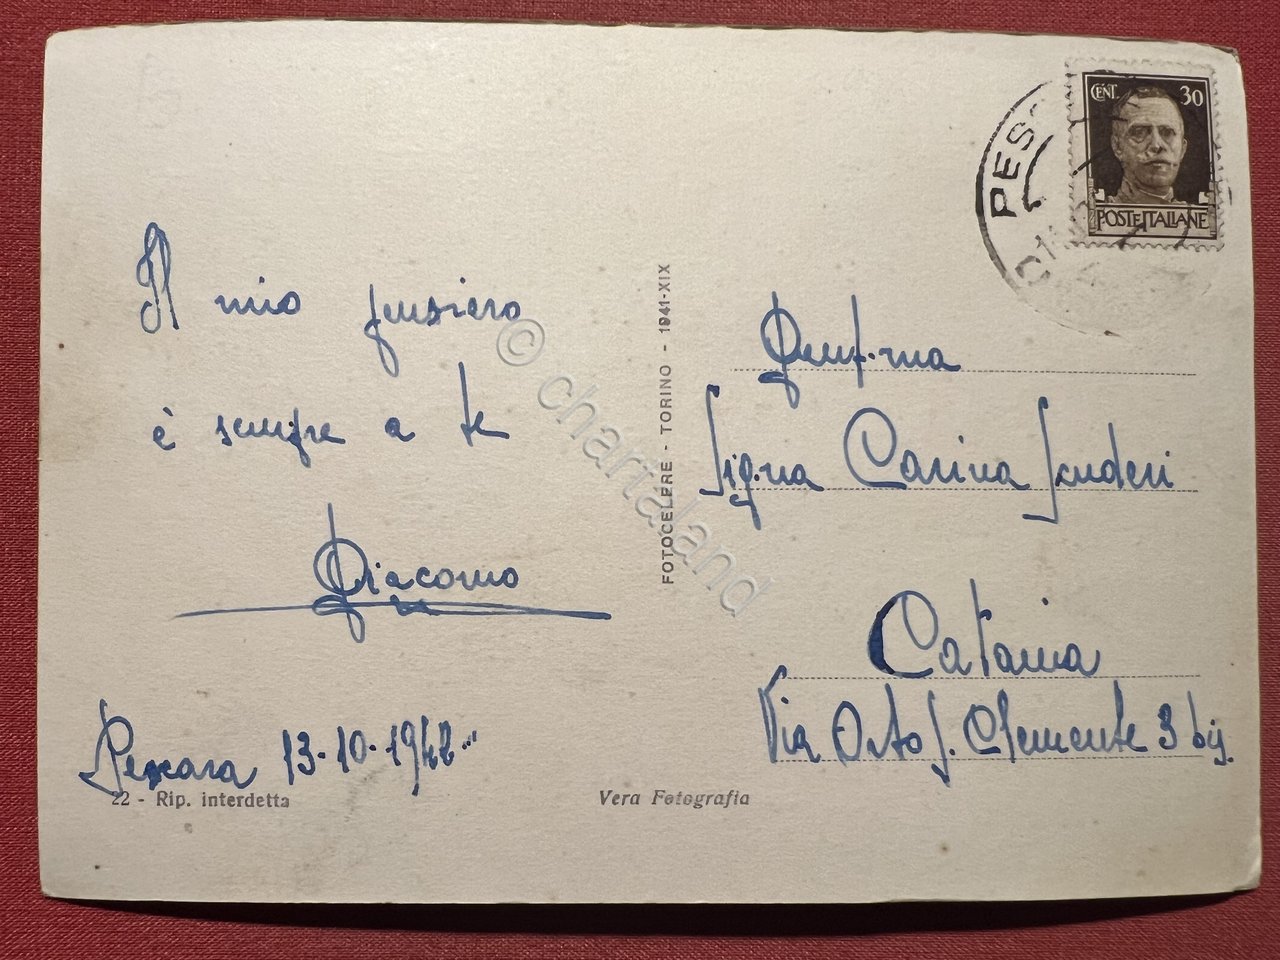 Il mio pensiero
è sempre a te
Giacomo
Pescara 13-10-1942
22 - Rip. interdetta
Vera Fotografia
FOTOCELERE - TORINO - 1941-XIX
© chartaland
PES
CENT. 30
POSTE ITALIANE
Sig.na Carina Scuderi
Catania
Via Orto S. Clemente 3 bis.